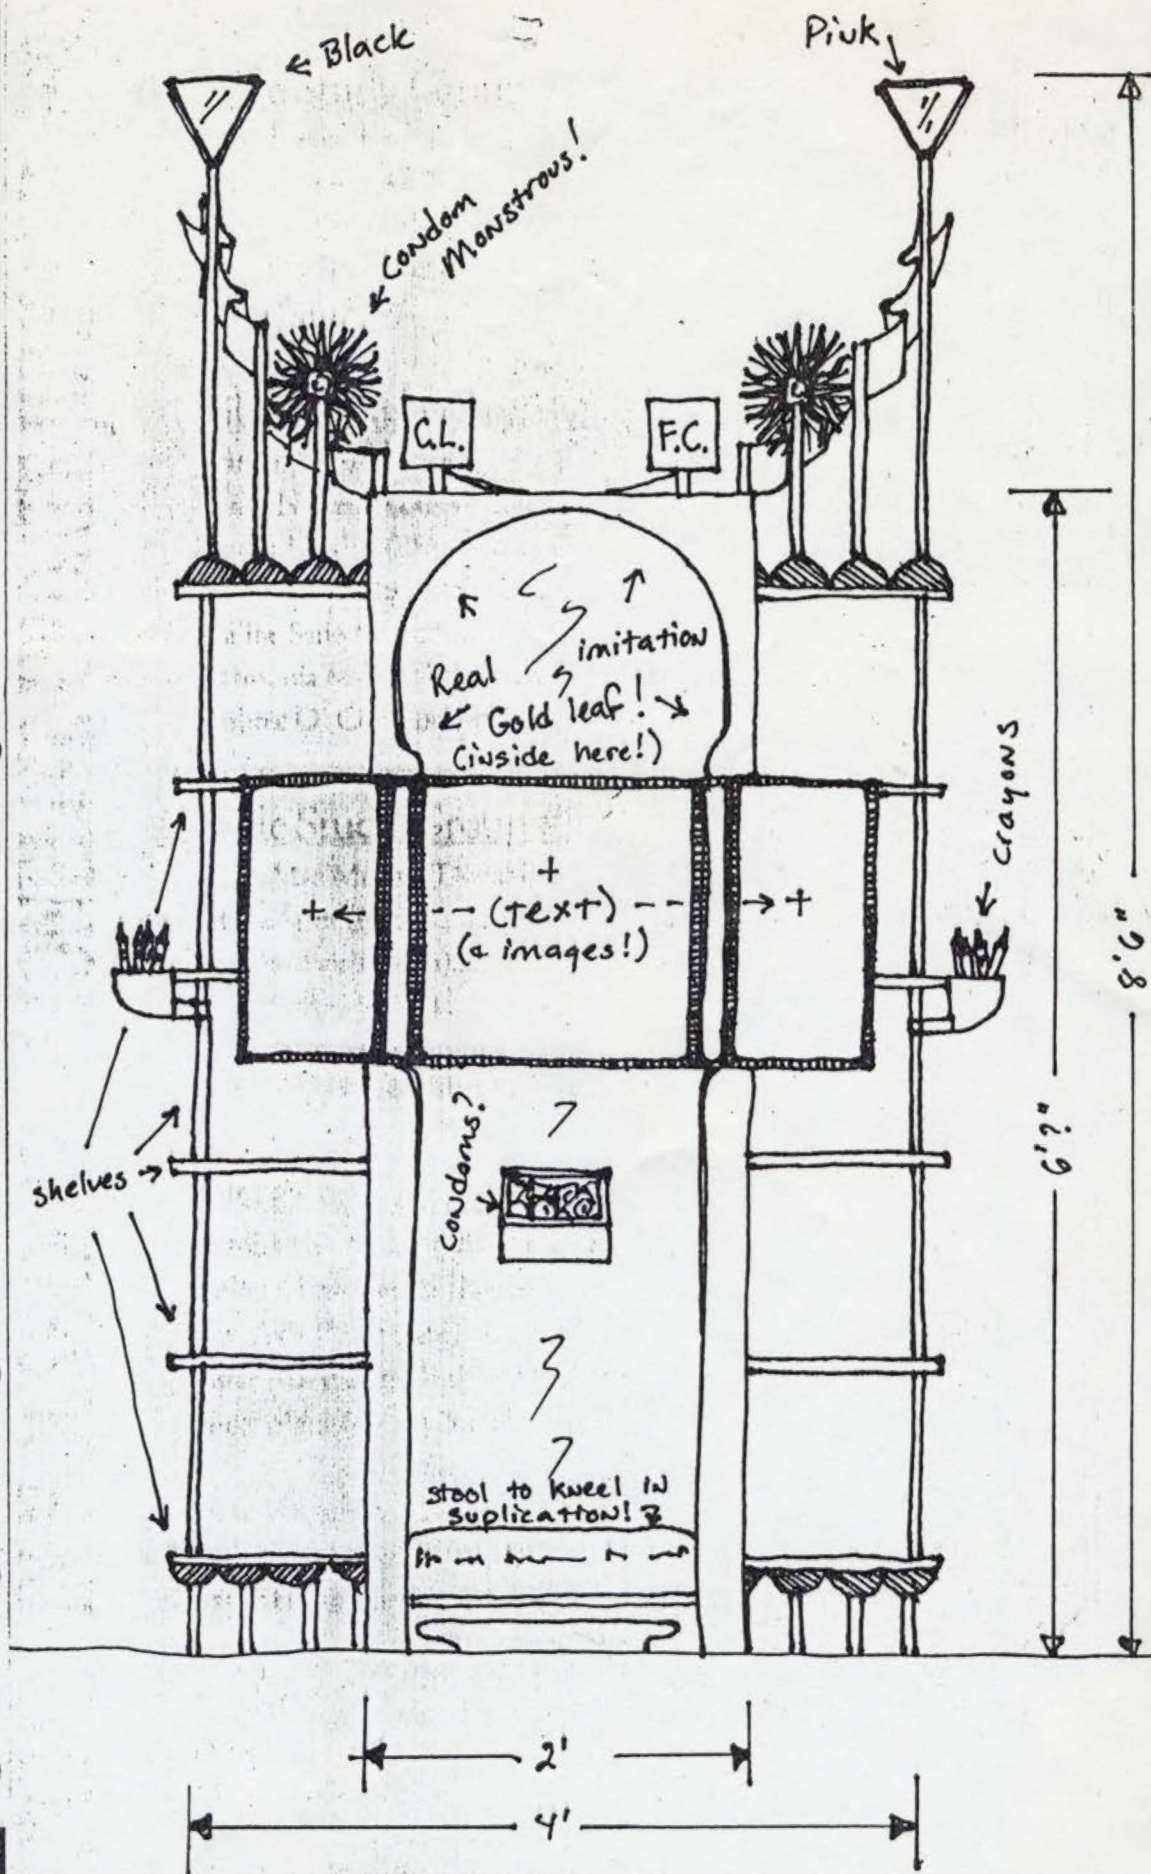 ← Black
Pink
Condom
Monstrous!
C.L.
F.C.
Real
imitation
Gold leaf!
(inside here!)
crayons
+
+ ← -- (text) -- → +
(& images!)
8'6"
6'?"
Condoms?
shelves →
stool to kneel in
suplication!
2'
4'